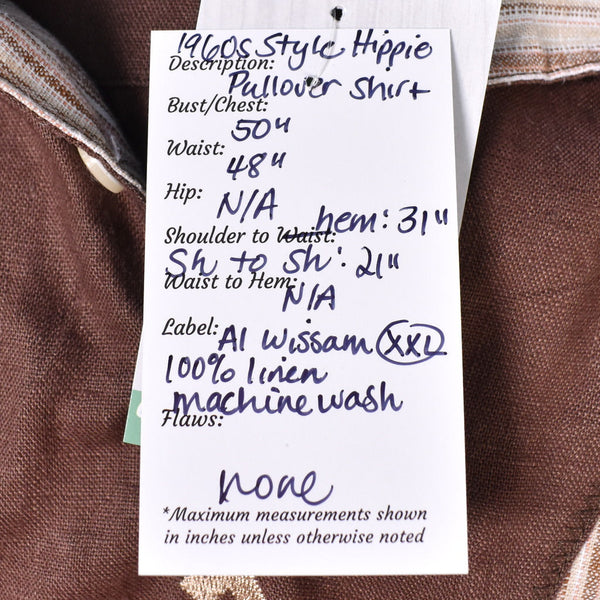 1960s Style Hippie
Description:
Pullover Shirt
Bust/Chest:
50"
Waist:
48"
Hip:
N/A
hem: 31"
Shoulder to Waist:
Sh to Sh: 21"
Waist to Hem:
N/A
Label: Al Wissam XXL
100% linen
machine wash
Flaws:
none
*Maximum measurements shown
in inches unless otherwise noted